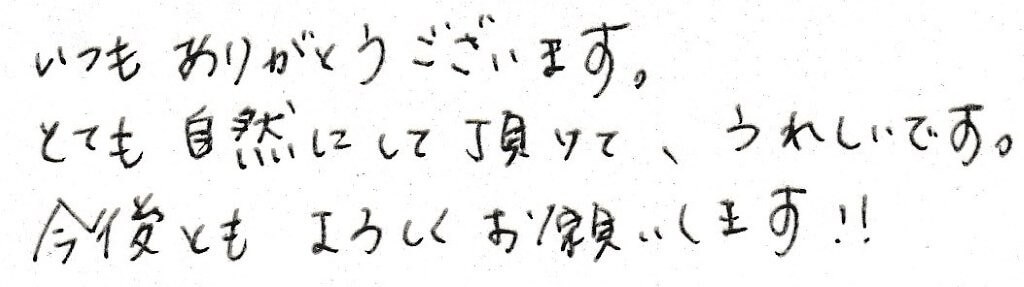 いつもありがとうございます。
とても自然にして頂けて、うれしいです。
今後ともよろしくお願いします!!